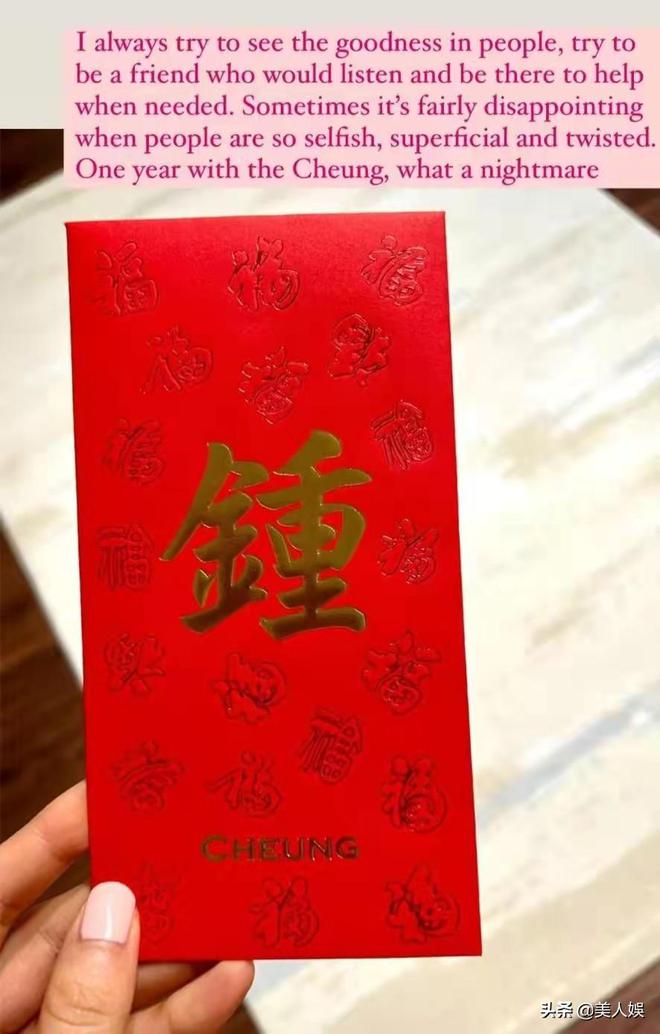 I always try to see the goodness in people, try to
be a friend who would listen and be there to help
when needed. Sometimes it's fairly disappointing
when people are so selfish, superficial and twisted.
One year with the Cheung, what a nightmare
福 福 福
福 福 福
福 福
鍾
福 福
福 福 福
福
福 福 福
CHEUNG
福 福 福
头条 @美人娱